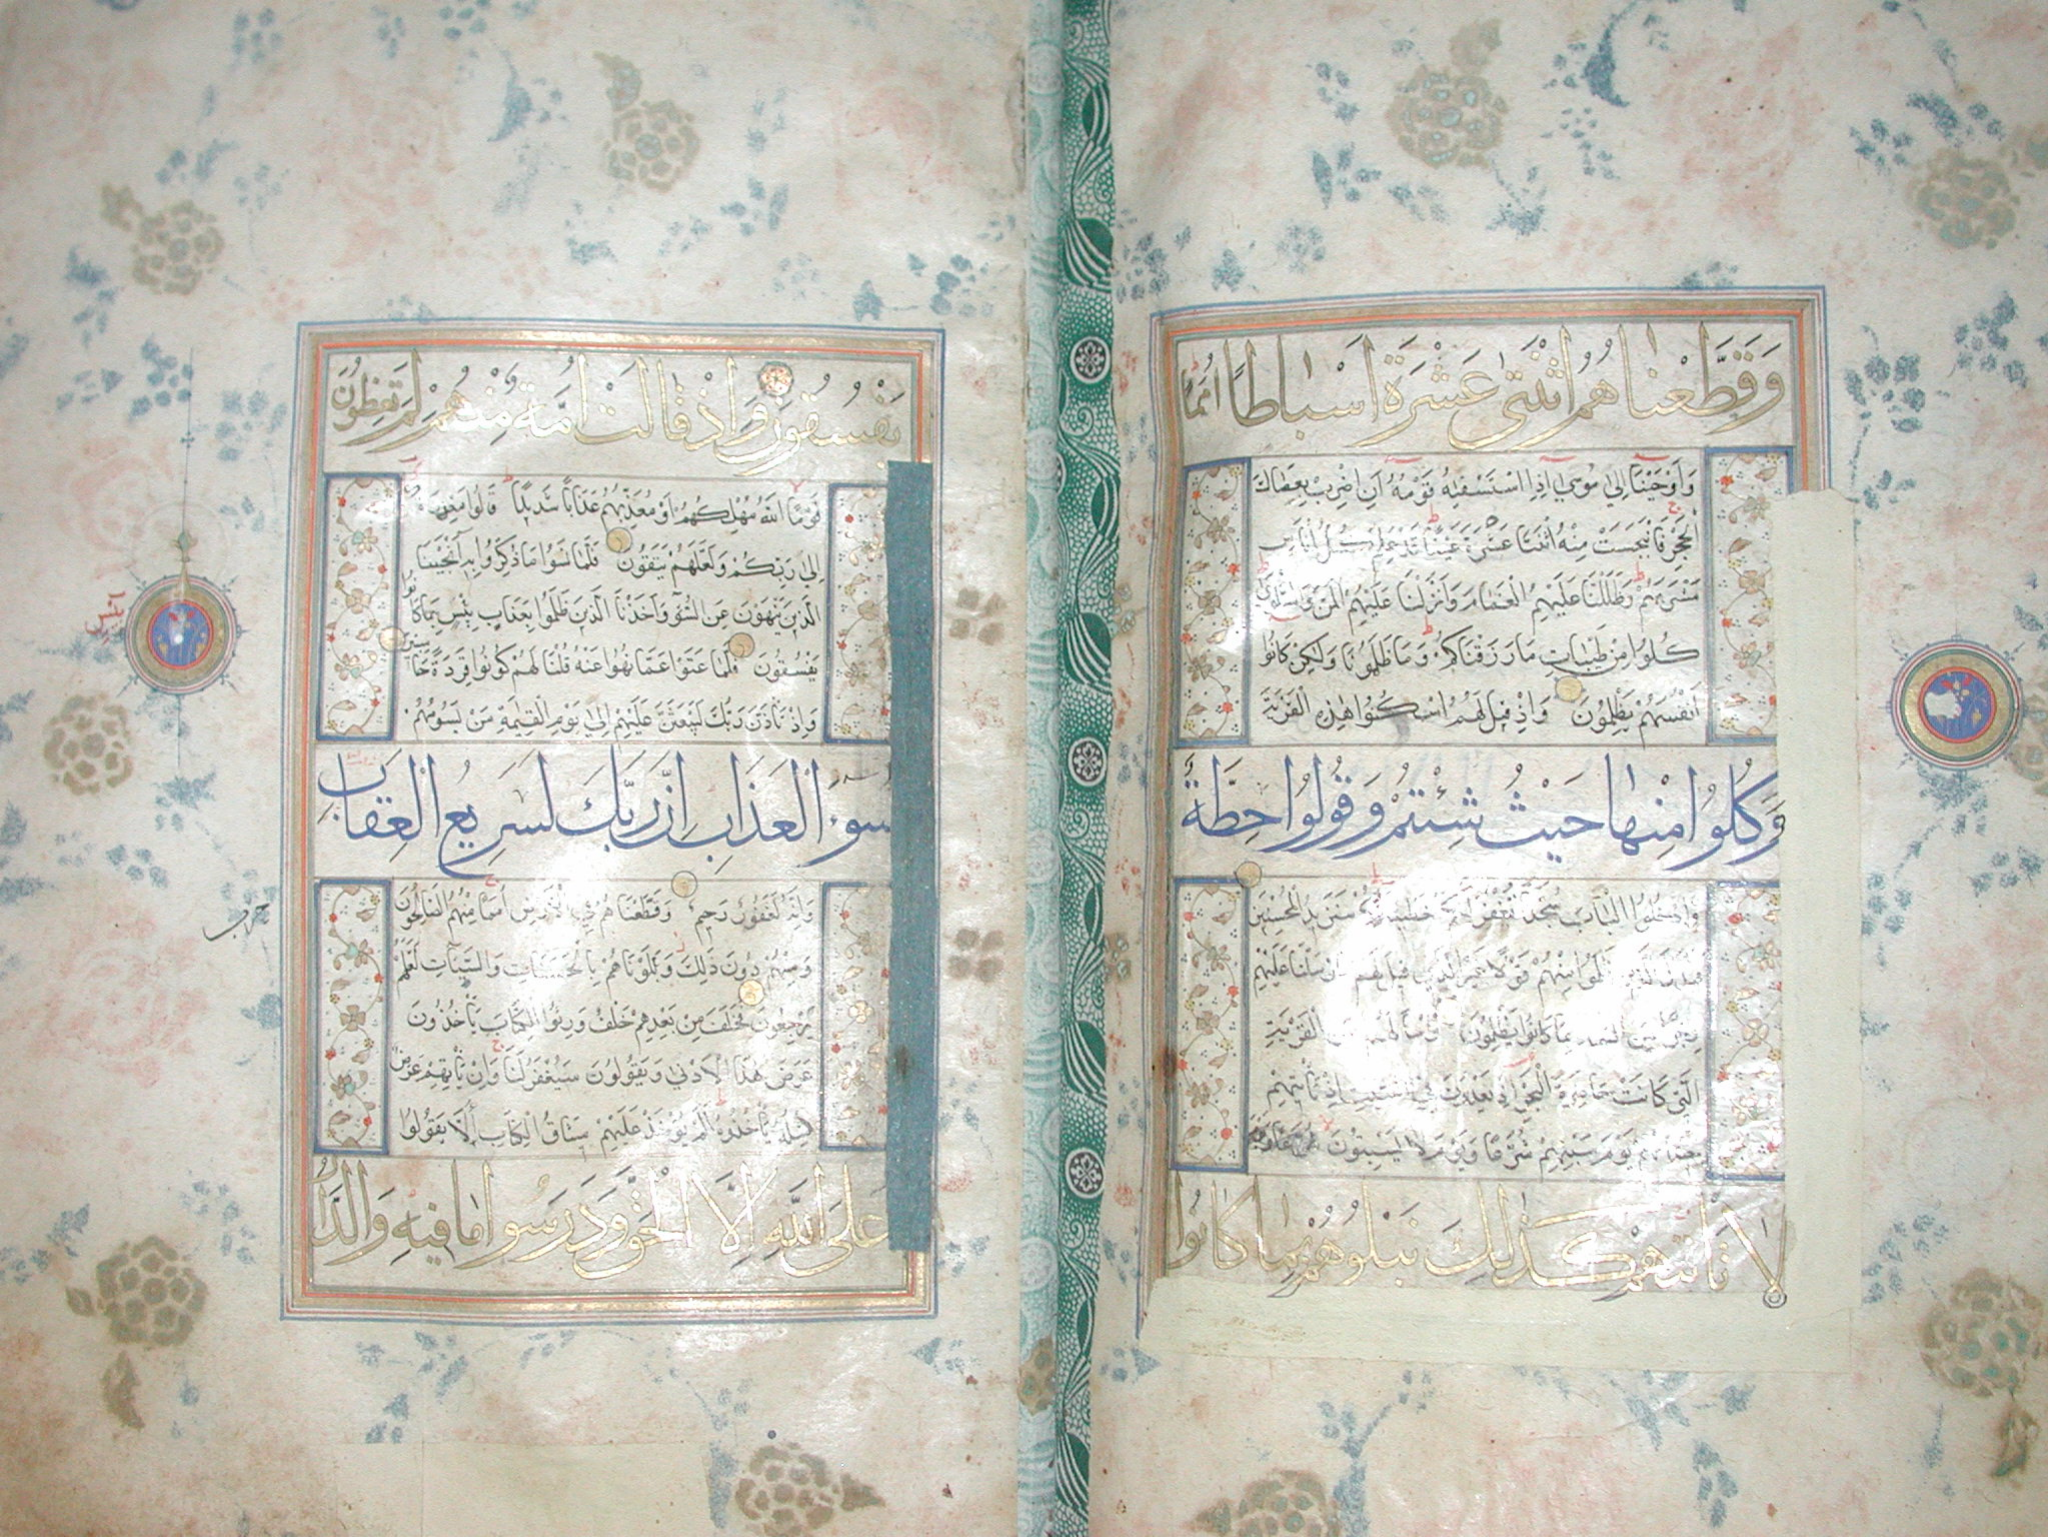 وَقَطَّعْنَاهُمُ اثْنَتَىْ عَشْرَةَ اَسْبَاطًا اُمَمًا
وَاَوْحَيْنَا اِلىٰ مُوسىٰ اِذِ اسْتَسْقٰيهُ قَوْمُهُ اَنِ اضْرِبْ بِعَصَاكَ
الْحَجَرَ فَانْبَجَسَتْ مِنْهُ اثْنَتَا عَشْرَةَ عَيْنًا قَدْ عَلِمَ كُلُّ اُنَاسٍ
مَشْرَبَهُمْ وَظَلَّلْنَا عَلَيْهِمُ الْغَمَامَ وَاَنْزَلْنَا عَلَيْهِمُ الْمَنَّ وَالسَّلْوىٰ
كُلُوا مِنْ طَيِّبَاتِ مَا رَزَقْنَاكُمْ وَمَا ظَلَمُونَا وَلٰكِنْ كَانُوا
اَنْفُسَهُمْ يَظْلِمُونَ وَاِذْ قِيلَ لَهُمُ اسْكُنُوا هٰذِهِ الْقَرْيَةَ
وَكُلُوا مِنْهَا حَيْثُ شِئْتُمْ وَقُولُوا حِطَّةٌ
وَادْخُلُوا الْبَابَ سُجَّدًا نَغْفِرْ لَكُمْ خَطِيئَاتِكُمْ سَنَزِيدُ الْمُحْسِنِينَ
فَبَدَّلَ الَّذِينَ ظَلَمُوا مِنْهُمْ قَوْلًا غَيْرَ الَّذِي قِيلَ لَهُمْ فَاَرْسَلْنَا عَلَيْهِمْ
رِجْزًا مِنَ السَّمَاءِ بِمَا كَانُوا يَظْلِمُونَ وَسْأَلْهُمْ عَنِ الْقَرْيَةِ
الَّتِي كَانَتْ حَاضِرَةَ الْبَحْرِ اِذْ يَعْدُونَ فِي السَّبْتِ اِذْ تَأْتِيهِمْ
حِيتَانُهُمْ يَوْمَ سَبْتِهِمْ شُرَّعًا وَيَوْمَ لَا يَسْبِتُونَ
لَا تَأْتِيهِمْ كَذٰلِكَ نَبْلُوهُمْ بِمَا كَانُوا
يَفْسُقُونَ وَاِذْ قَالَتْ اُمَّةٌ مِنْهُمْ لِمَ تَعِظُونَ
قَوْمًا اللّٰهُ مُهْلِكُهُمْ اَوْ مُعَذِّبُهُمْ عَذَابًا شَدِيدًا قَالُوا مَعْذِرَةً
اِلىٰ رَبِّكُمْ وَلَعَلَّهُمْ يَتَّقُونَ فَلَمَّا نَسُوا مَا ذُكِّرُوا بِهِ اَنْجَيْنَا
الَّذِينَ يَنْهَوْنَ عَنِ السُّوءِ وَاَخَذْنَا الَّذِينَ ظَلَمُوا بِعَذَابٍ بَئِيسٍ بِمَا كَانُوا
يَفْسُقُونَ فَلَمَّا عَتَوْا عَمَّا نُهُوا عَنْهُ قُلْنَا لَهُمْ كُونُوا قِرَدَةً خَاسِئِينَ
وَاِذْ تَأَذَّنَ رَبُّكَ لَيَبْعَثَنَّ عَلَيْهِمْ اِلىٰ يَوْمِ الْقِيٰمَةِ مَنْ يَسُومُهُمْ
سُوءَ الْعَذَابِ اِنَّ رَبَّكَ لَسَرِيعُ الْعِقَابِ
وَاِنَّهُ لَغَفُورٌ رَحِيمٌ وَقَطَّعْنَاهُمْ فِي الْاَرْضِ اُمَمًا مِنْهُمُ الصَّالِحُونَ
وَمِنْهُمْ دُونَ ذٰلِكَ وَبَلَوْنَاهُمْ بِالْحَسَنَاتِ وَالسَّيِّئَاتِ لَعَلَّهُمْ
يَرْجِعُونَ فَخَلَفَ مِنْ بَعْدِهِمْ خَلْفٌ وَرِثُوا الْكِتَابَ يَأْخُذُونَ
عَرَضَ هٰذَا الْاَدْنىٰ وَيَقُولُونَ سَيُغْفَرُ لَنَا وَاِنْ يَأْتِهِمْ عَرَضٌ
مِثْلُهُ يَأْخُذُوهُ اَلَمْ يُؤْخَذْ عَلَيْهِمْ مِيثَاقُ الْكِتَابِ اَنْ لَا يَقُولُوا
عَلَى اللّٰهِ اِلَّا الْحَقَّ وَدَرَسُوا مَا فِيهِ وَالدَّارُ
حزب